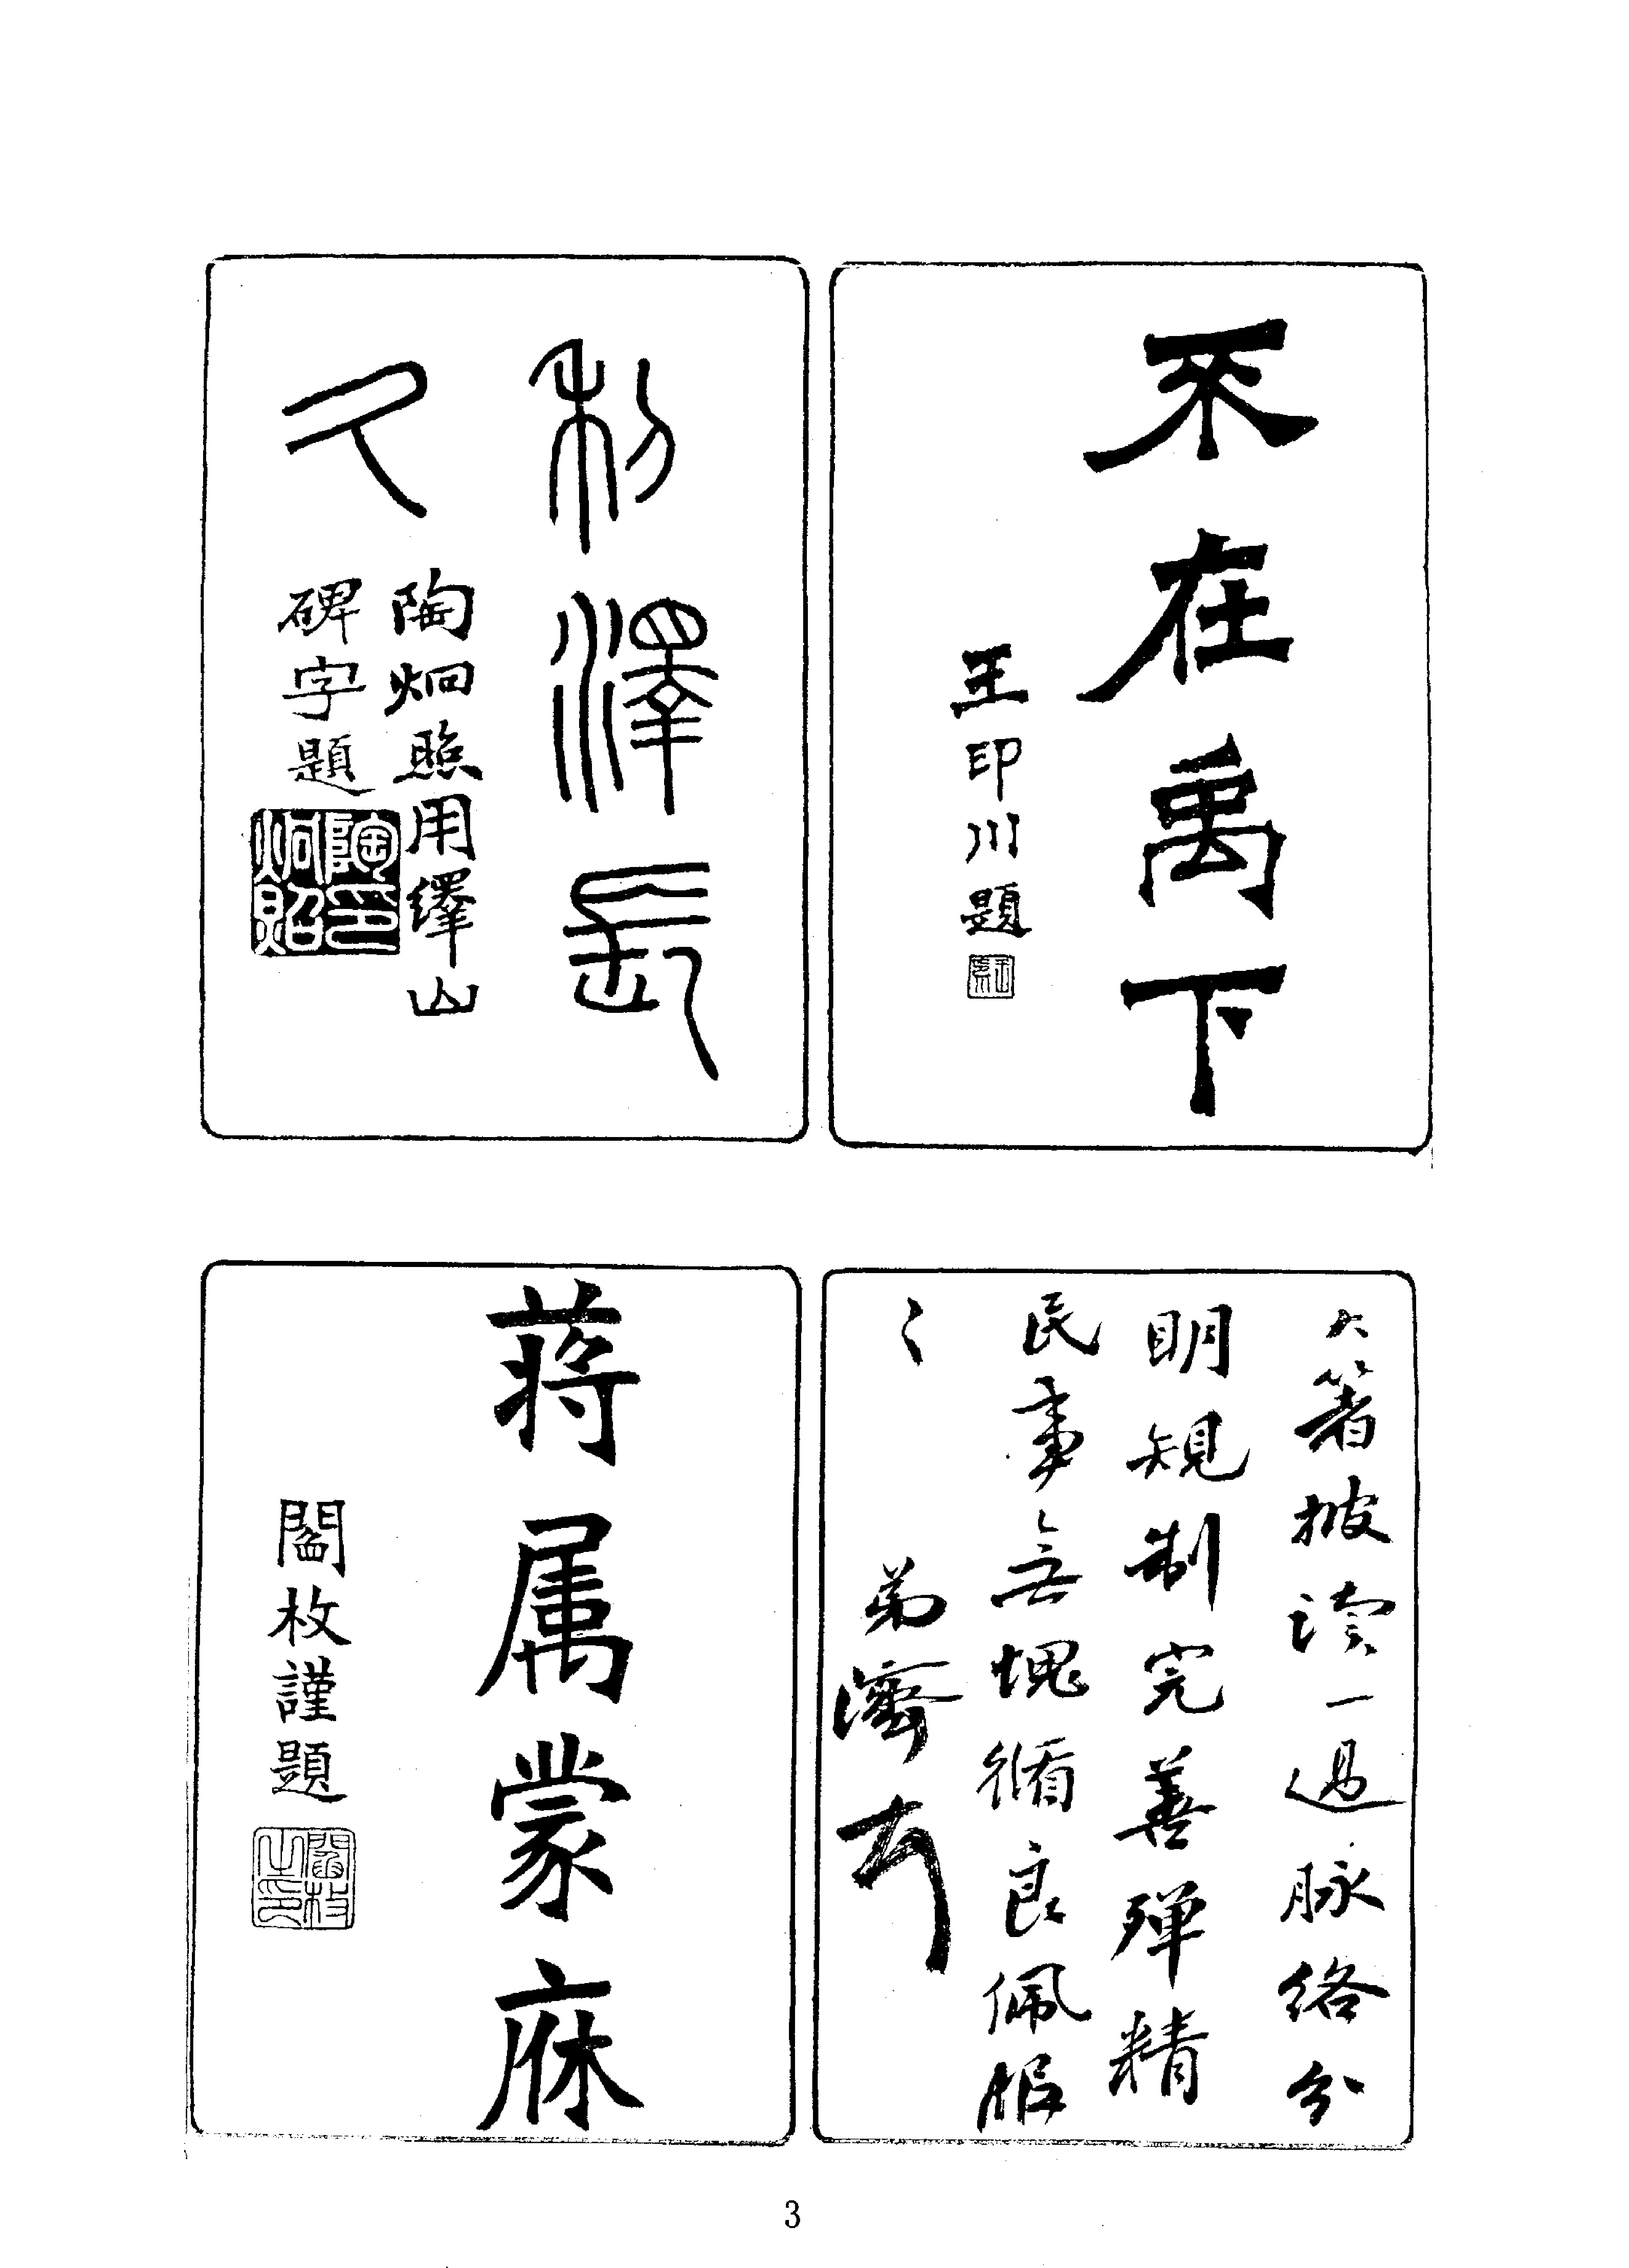 不在禹下
王印川題
利澤長
久
陶炯照用繹山
碑字題
陶印炯照
大箸披讀一過脉絡分
明規制完善殫精
民事無愧循良佩服
〻
弟濟
蔣属蒙庥
閻枚謹題
閻枚之印
3